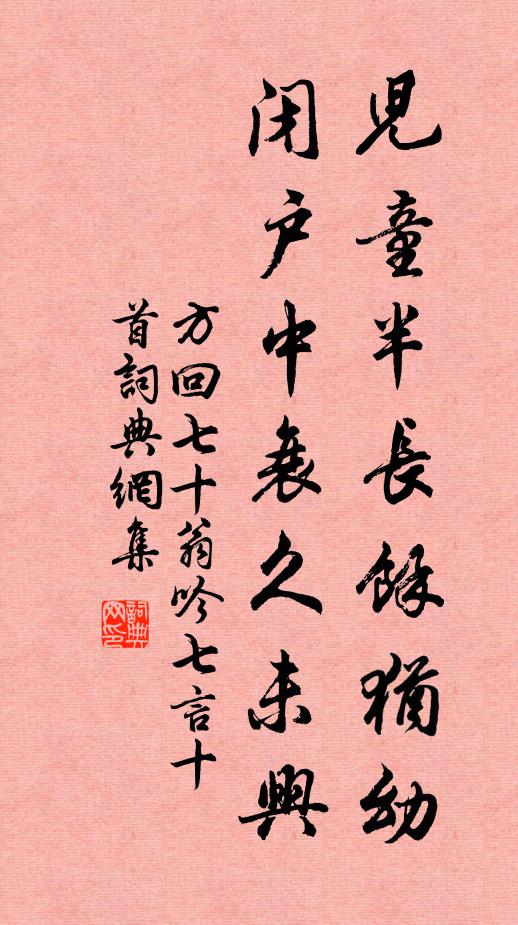 兒童半長餘猶幼
閉户中衰久未興
方回七十翁吟七言十
首詞典網集
詞典
网印